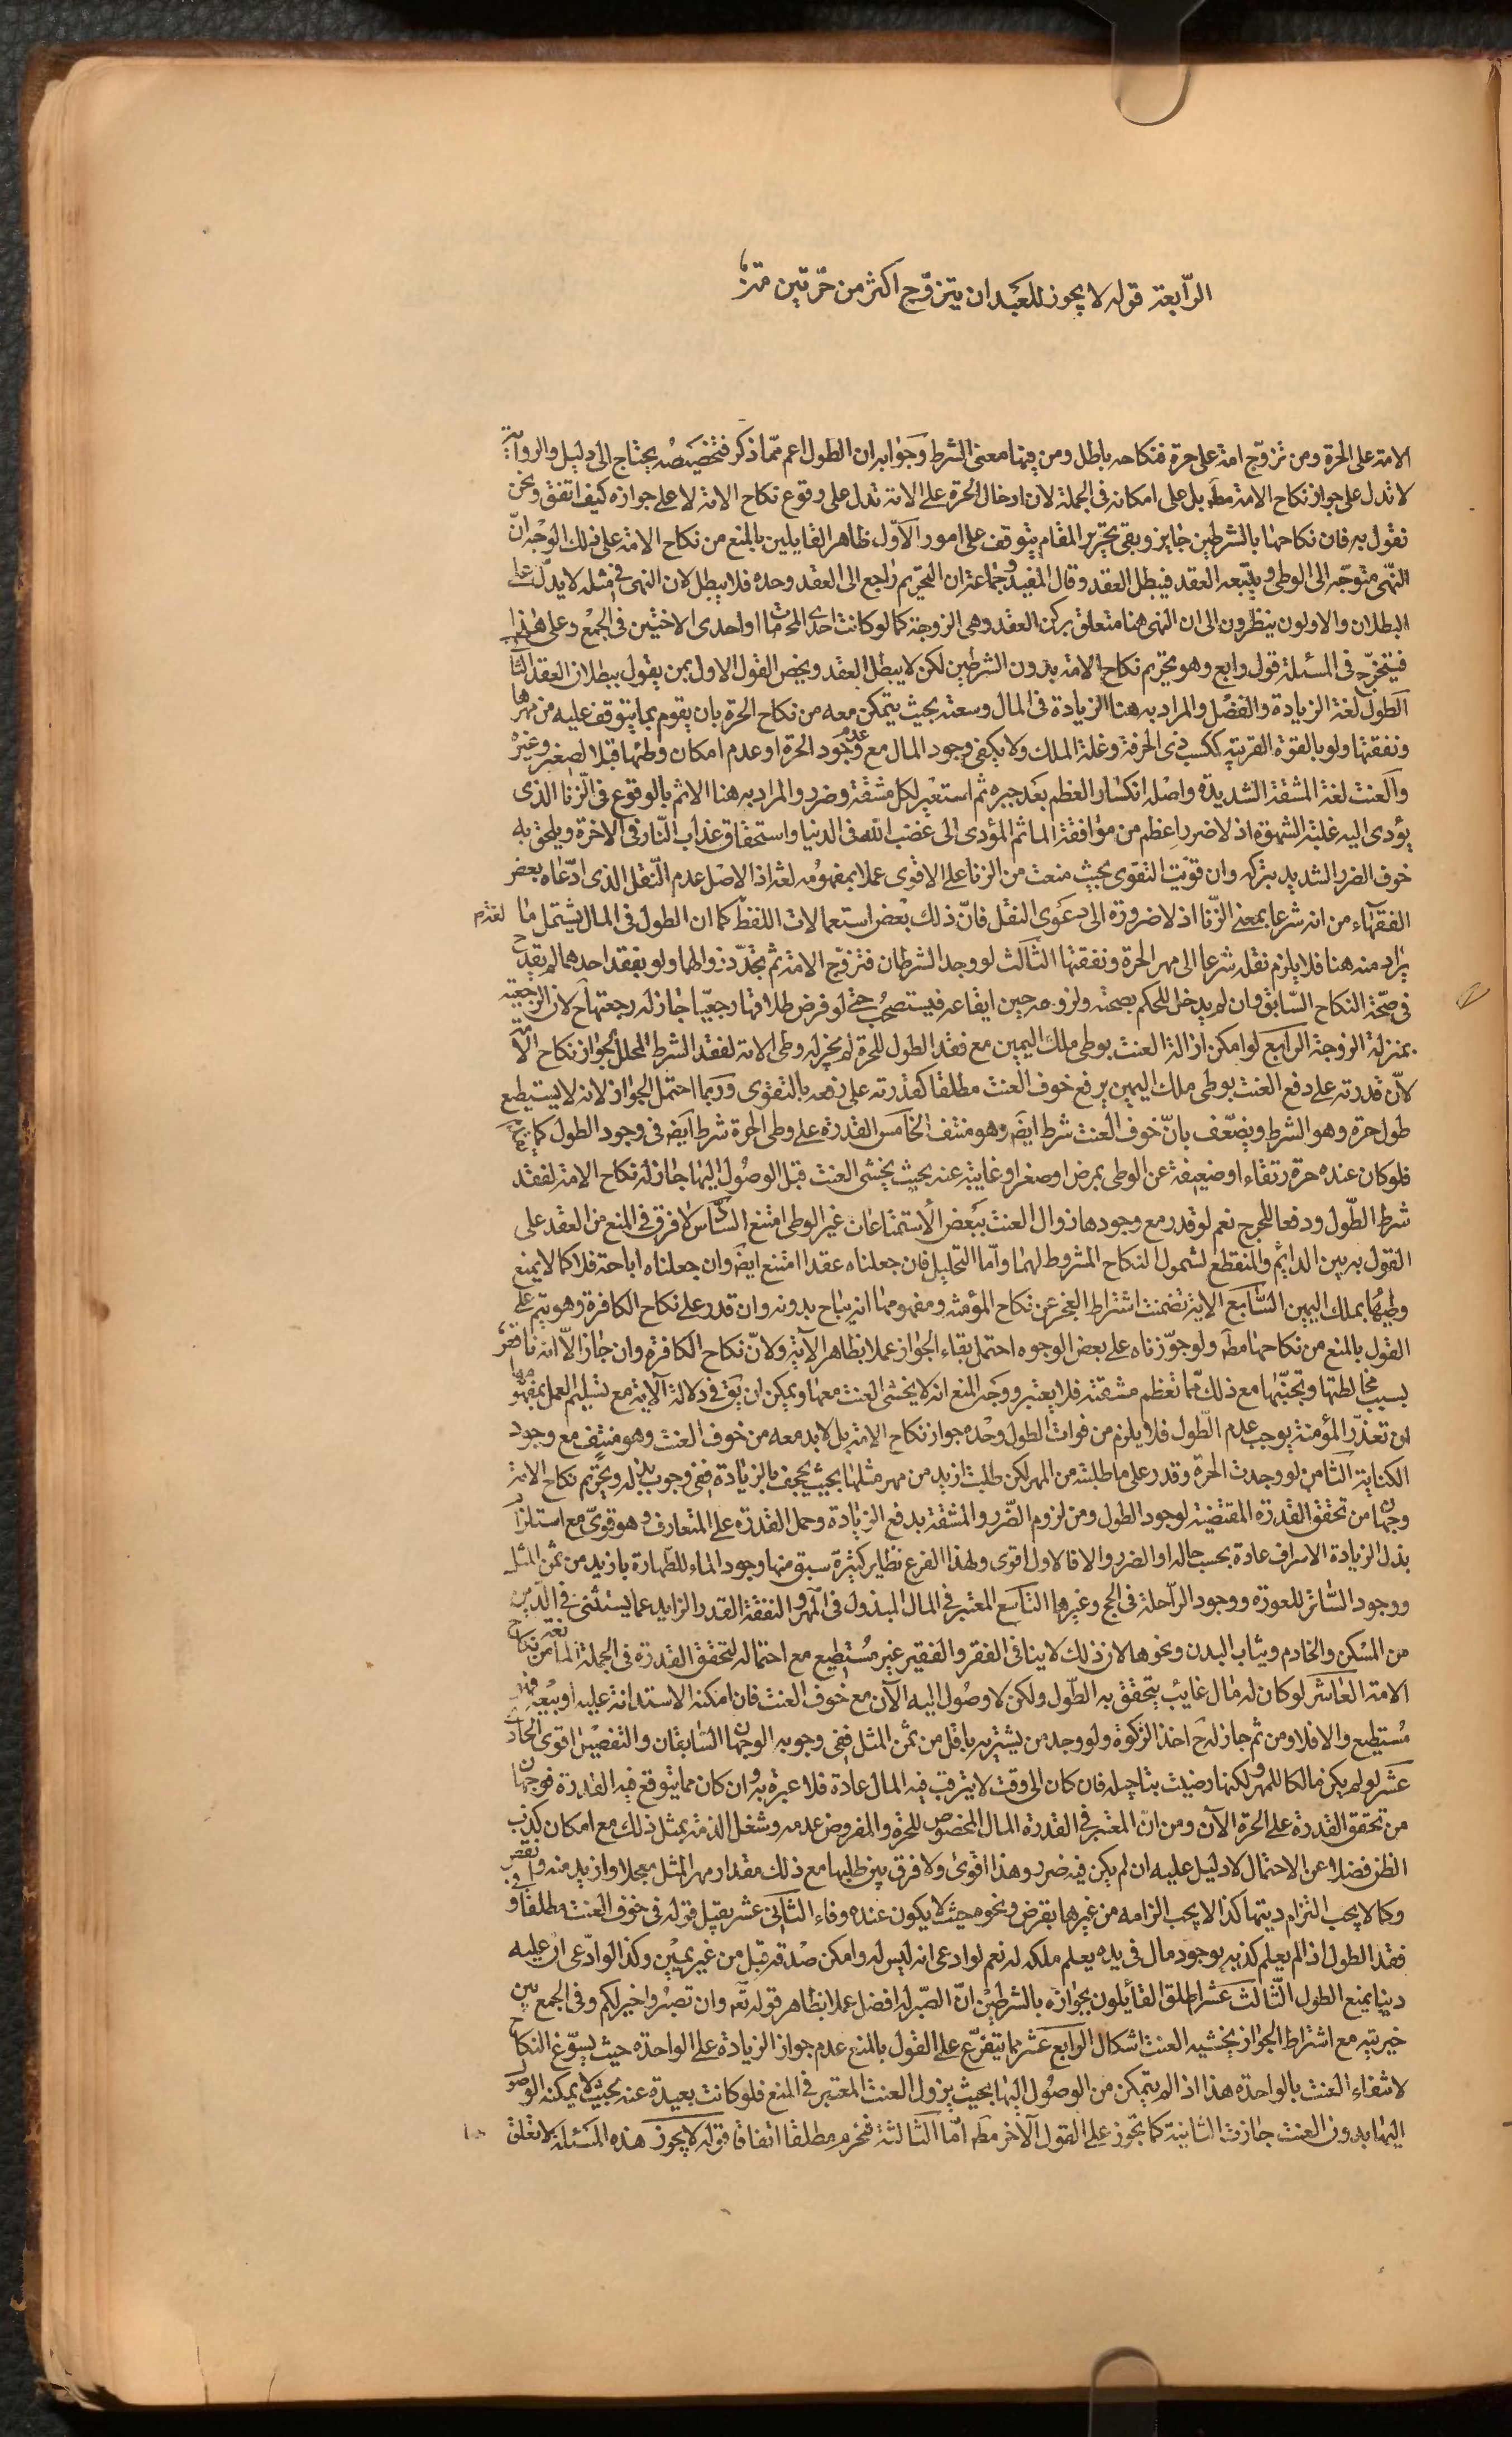 الرّابعة قوله لا يجوز للعبد ان يتزوّج اكثر من حرّتين
الامة على الحرة ومن تزوّج امة على حرة فنكاحه باطل ومن فيها معنى الشرط وجوابه ان الطول اعم ممّا ذكر فتخصيصه يحتاج الى دليل والرواية
لا تدل على جواز نكاح الامة مطَ بل على امكانه فى الجملة لان ادخال الحرة على الامة تدل على وقوع نكاح الامة لا على جوازه كيف اتفق ونحن
نقول به فان نكاحها بالشرطين جايز وبقى تحرير المقام يتوقف على امور الاوّل ظاهر القايلين بالمنع من نكاح الامة على ذلك الوجه انّ
النّهى متوجّه الى الوطى ويتبعه العقد فيبطل العقد وقال المفيد وجماعة ان التحريم راجع الى العقد وحده فلا يبطل لان النهى فى مثله لا يدلّ على
البطلان والاولون ينظرون الى ان النهى هنا متعلق بركن العقد وهى الزوجة كما لو كانت احدى المحرمات او احدى الاختين فى الجمع وعلى هذا
فيتخرّج فى المسئلة قول رابع وهو تحريم نكاح الامة بدون الشرطين لكن لا يبطل العقد ويخص القول الاول بمن يقول ببطلان العقد الثانى
الطول لغة الزيادة والفضل والمراد به هنا الزيادة فى المال وسعته بحيث يتمكن معه من نكاح الحرة بان يقوم بما يتوقف عليه من مهرها
ونفقتها ولو بالقوة القريبة ككسب ذى الحرفة وغلة الملك ولا يكفى وجود المال مع عدم وجود الحرة او عدم امكان وطئها قبلا لصغر وغيره
والعنت لغة المشقة الشديدة واصله انكسار العظم بعد جبره ثم استعير لكل مشقة وضرر والمراد به هنا الاثم بالوقوع فى الزنا الذى
يؤدى اليه غلبة الشهوة اذ لا ضرر اعظم من موافقة الماثم المؤدى الى غضب الله فى الدنيا واستحقاق عذاب النّار فى الاخرة ويلحق به
خوف الضرر الشديد بتركه وان قويت التقوى بحيث منعت من الزنا على الاقوى عملا بمفهومه لغة اذ الاصل عدم النّقل الذى ادّعاه بعض
الفقهاء من انه شرعا بمعنى الزّنا اذ لا ضرورة الى دعوى النقل فانّ ذلك بعض استعمالات اللفظ كما ان الطول فى المال يشتمل ما لغة
يراد منه هنا فلا يلزم نقله شرعا الى مهر الحرة ونفقتها الثالث لو وجد الشرطان فتزوّج الامة ثم تجدّد زوالهما ولو بفقد احدهما لم يقدح
فى صحّة النكاح السّابق وان لم يدخل للحكم بصحته ولزومه حين ايقاعه فيستصحب حتى لو فرض طلاقها رجعيّا جاز له رجعتها ح لان الرجعية
بمنزلة الزوجة الرابع لو امكن ازالة العنت بوطى ملك اليمين مع فقد الطول للحرة لم يجز له وطى الامة لفقد الشرط المحلل لجواز نكاح الامة
لانّ قدرته على دفع العنت بوطى ملك اليمين يرفع خوف العنت مطلقا كقدرته على دفعه بالتقوى وربما احتمل الجواز لانه لا يستطيع
طول حرة وهو الشرط ويضعّف بانّ خوف العنت شرط ايضَ وهو منتف الخامس القدرة على وطى الحرة شرط ايضَ فى وجود الطول كما
فلو كان عنده حرة رتقاء او ضعيفة عن الوطى بمرض او صغر او غايبة عنه بحيث يخشى العنت قبل الوصول اليها جاز له نكاح الامة لفقد
شرط الطّول ودفعا للحرج نعم لو قدر مع وجودها زوال العنت ببعض الاستمتاعات غير الوطى امتنع السّادس لا فرق فى المنع من العقد على
القول به بين الدايم والمنقطع لشمول النكاح المشروط لهما وامّا التحليل فان جعلناه عقدا امتنع ايضَ وان جعلناه اباحة فلا كما لا يمنع
وطيها بملك اليمين السّابع الاية تضمنت اشتراط العجز عن نكاح المؤمنة ومفهومها انه يباح بدونه وان قدر على نكاح الكافرة وهو يتم على
القول بالمنع من نكاحها مطَ ولو جوّزناه على بعض الوجوه احتمل بقاء الجواز عملا بظاهر الآية ولانّ نكاح الكافرة وان جاز الّا انه ناقص
بسبب مخالطتها وتجنّبها مع ذلك ممّا تعظم مشقته فلا يعتبر ووجه المنع انه لا يخشى العنت معها ويمكن ان يق فى دلالة الآية مع تسليم العمل بمفهومها
ان تعذّر المؤمنة يوجب عدم الطّول فلا يلزم من فوات الطول وحده جواز نكاح الامة بل لا بد معه من خوف العنت وهو منتف مع وجود
الكتابية الثامن لو وجدت الحرة وقدر على ما طلبته من المهر لكن طلبت ازيد من مهر مثلها بحيث يجحف بالزيادة ففى وجوب بذله وتحريم نكاح الامة
وجهان من تحقق القدرة المقتضية لوجود الطول ومن لزوم الضّرر والمشقة بدفع الزيادة وحمل القدرة على المتعارف وهو قوىّ مع استلزام
بذل الزيادة الاسراف عادة بحسب حاله او الضرر والا فالاول اقوى ولهذا الفرع نظاير كثيرة سبق منها وجود الماء للطّهارة بازيد من ثمن المثل
ووجود السّاتر للعورة ووجود الرّاحلة فى الحج وغيرها التاسع المعتبر فى المال المبذول فى المهر والنفقة القدر الزايد عما يستثنى فى الدّين
من المسكن والخادم وثياب البدن ونحوها لان ذلك لا ينافى الفقر والفقير غير مستطيع مع احتماله لتحقق القدرة فى الجملة المانعة من نكاح
الامة العاشر لو كان له مال غايب يتحقق به الطّول ولكن لا وصول اليه الآن مع خوف العنت فان امكنه الاستدانة عليه او بيعه فهو
مستطيع والا فلا ومن ثم جاز له ح اخذ الزكوة ولو وجد من يشتريه باقل من ثمن المثل ففى وجوبه الوجهان السّابقان والتفصيل اقوى الحادى
عشر لو لم يكن مالكا للمهر ولكنها رضيت بتاجيله فان كان الى وقت لا يترقب فيه المال عادة فلا عبرة به وان كان مما يتوقع فيه القدرة فوجهان
من تحقق القدرة على الحرة الآن ومن انّ المعتبر فى القدرة المال المخصوص للحرة والمفروض عدمه وشغل الذمة بمثل ذلك مع امكان كذب
الظن فضلا عن الاحتمال لا دليل عليه ان لم يكن فيه ضرر وهذا اقوى ولا فرق بين طلبها مع ذلك مقدار مهر المثل معجلا وازيد منه وانقص
وكما لا يجب التزام ديتها كذا لا يجب الزامه من غيرها بقرض ونحوه حيث لا يكون عنده وفاء الثّانى عشر يقبل قوله فى خوف العنت مطلقا وفى
فقد الطول اذا لم يعلم كذبه بوجود مال فى يده يعلم ملكه له نعم لو ادعى انه ليس له وامكن صدقه قبل من غير يمين وكذا لو ادّعى ان عليه
دينا يمنع الطول الثّالث عشر اطلق القائلون بجوازه بالشرطين انّ الصّبر له افضل عملا بظاهر قوله تعَ وان تصبروا خير لكم وفى الجمع بين
خيريته مع اشتراط الجواز بخشيه العنت اشكال الرابع عشر مما يتفرّع على القول بالمنع عدم جواز الزيادة على الواحدة حيث يسوّغ النكاح
لانتفاء العنت بالواحدة هذا اذا لم يتمكن من الوصول اليها بحيث يزول العنت المعتبر فى المنع فلو كانت بعيدة عنه بحيث لا يمكنه الوصول
اليها بدون العنت جازت الثانية كما تجوز على القول الآخر مطَ امّا الثّالثة فتحرم مطلقا اتفاقا قوله لا يجوز هذه المسئلة لا تعلق